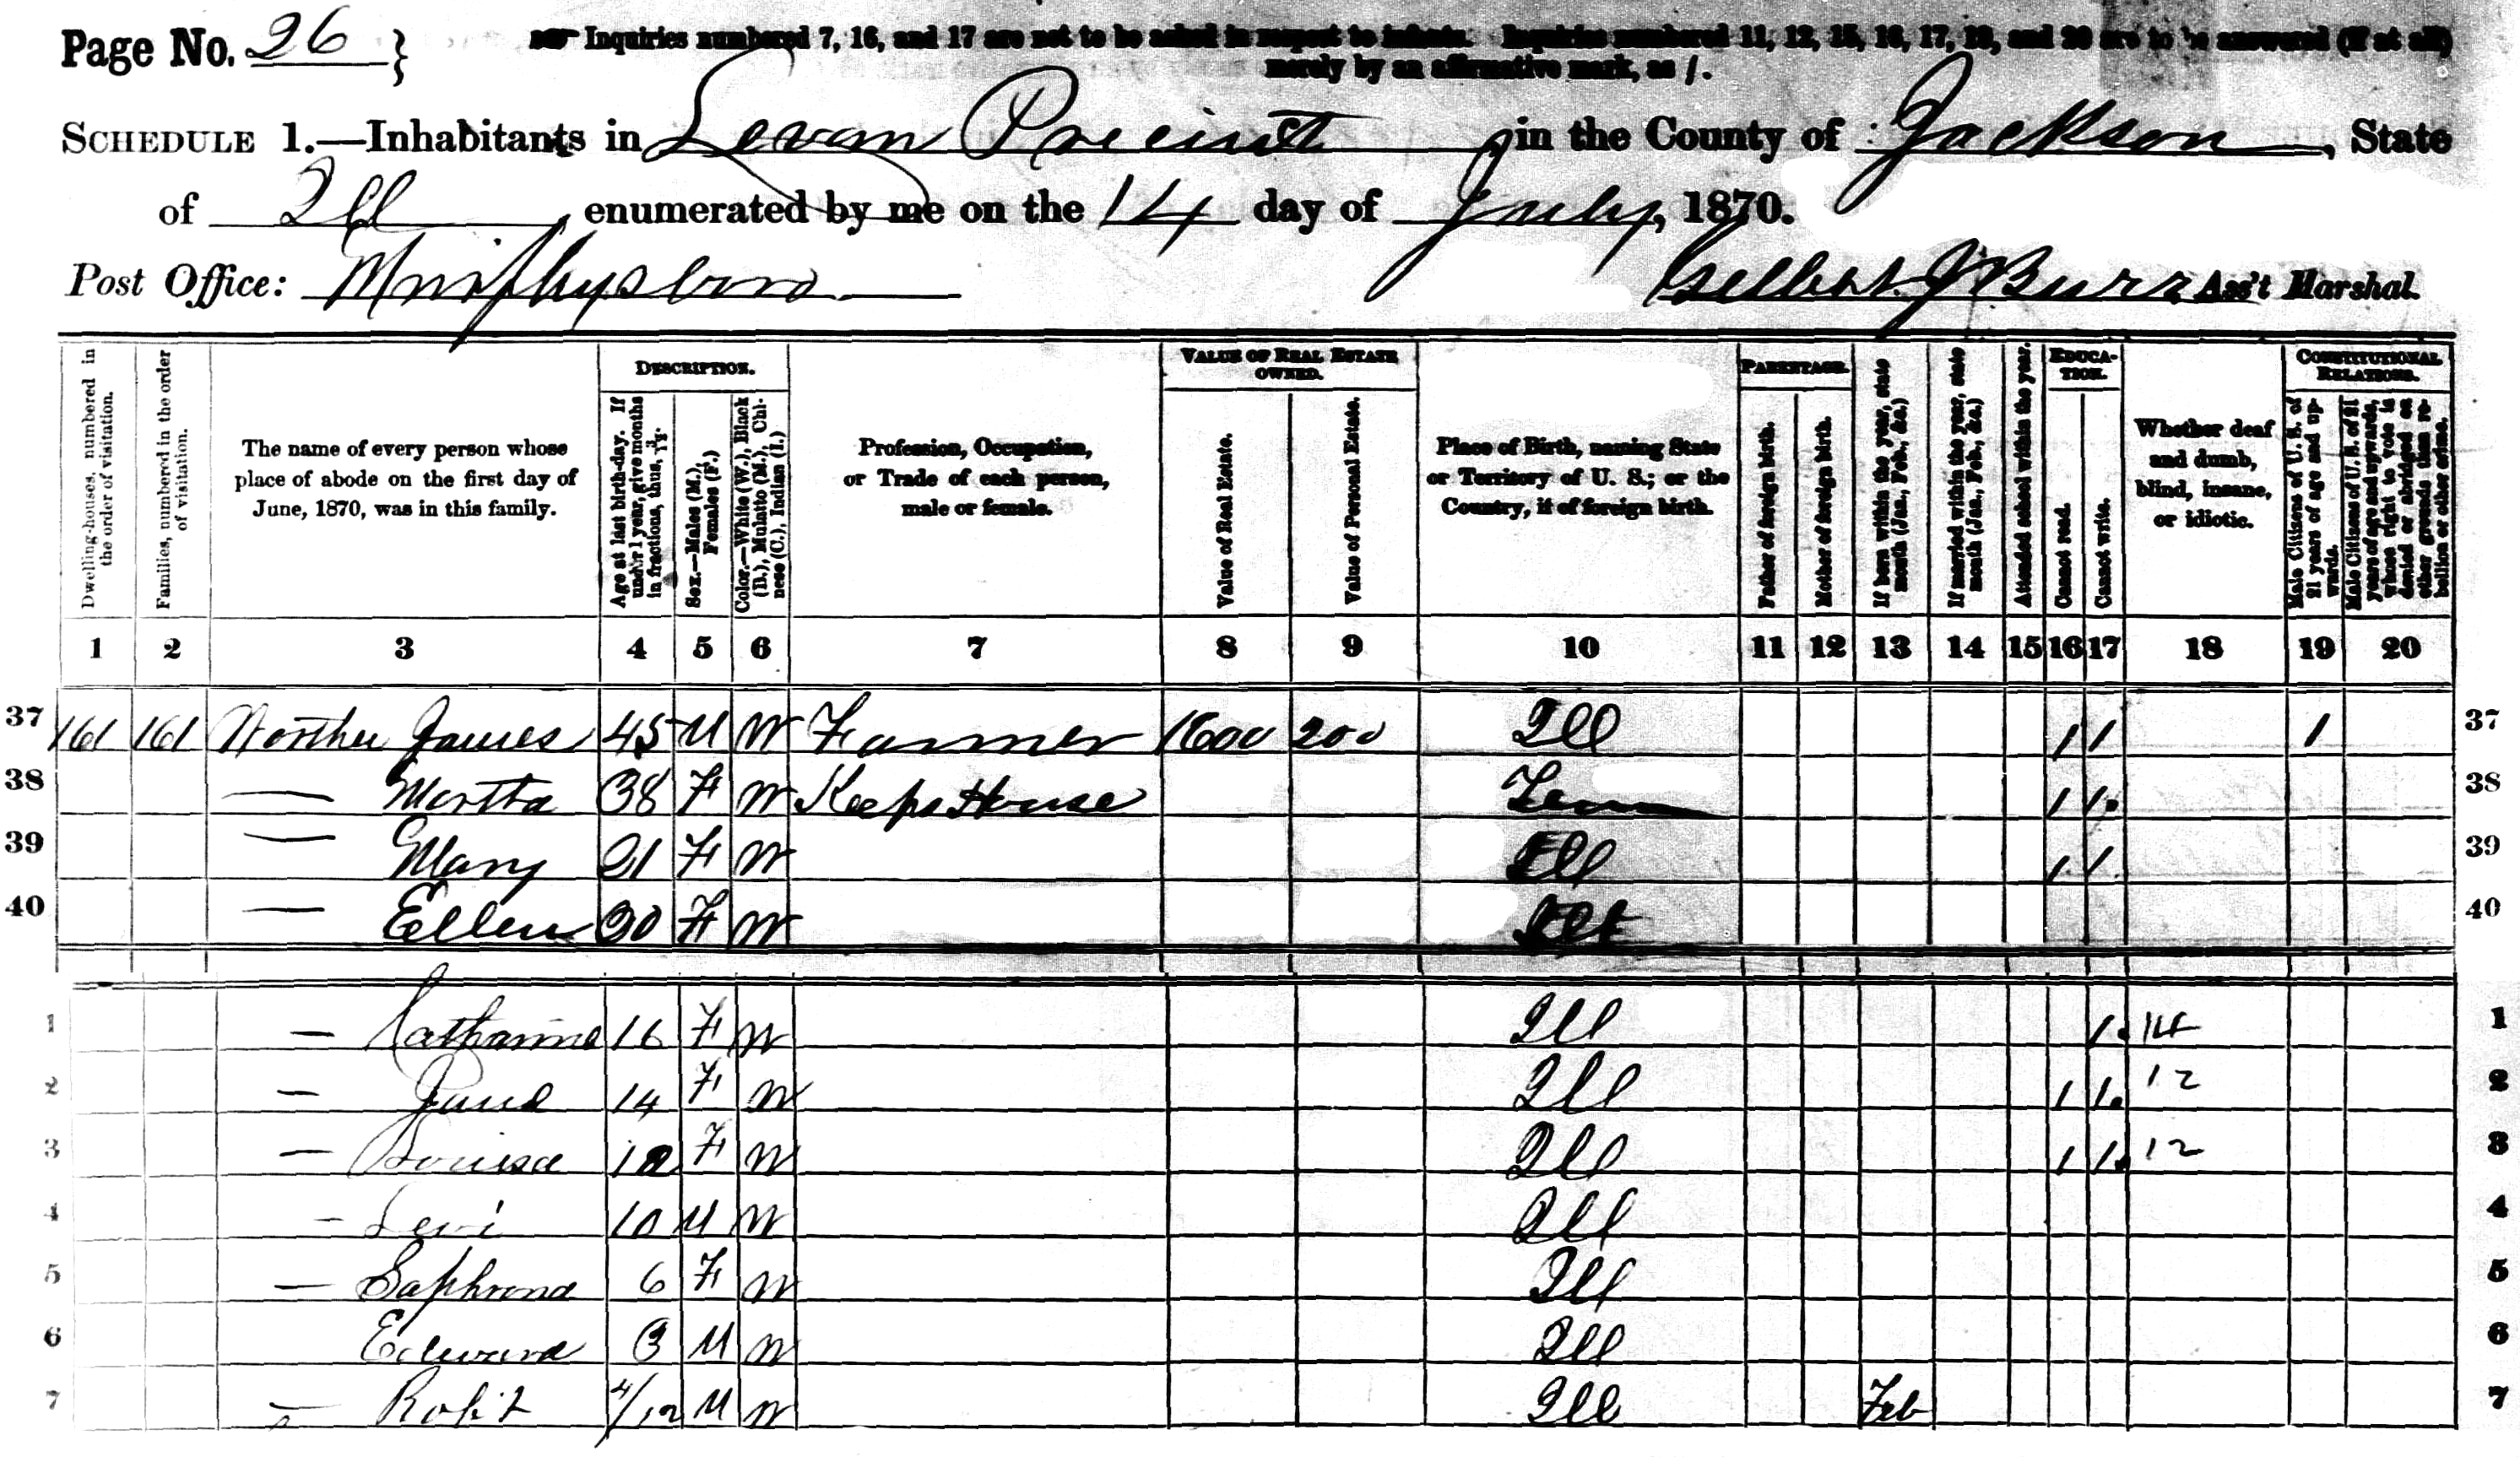 Page No. 26 }
Inquiries numbered 7, 16, and 17 are not to be asked in respect to infants. Inquiries numbered 11, 12, 15, 16, 17, 19, and 20 are to be answered (if at all)
merely by an affirmative mark, as /.
SCHEDULE 1.—Inhabitants in Levan Precinct, in the County of Jackson, State
of Ill, enumerated by me on the 14 day of July, 1870.
Post Office: Murphysboro
Gilbert J Burr Ass't Marshal.
Dwelling-houses, numbered in the order of visitation.
Families, numbered in the order of visitation.
The name of every person whose place of abode on the first day of June, 1870, was in this family.
DESCRIPTION.
Age at last birth-day. If under 1 year, give months in fractions, thus, 3/12.
Sex.—Males (M.), Females (F.)
Color.—White (W.), Black (B.), Mulatto (M.), Chinese (C.), Indian (I.)
Profession, Occupation, or Trade of each person, male or female.
VALUE OF REAL ESTATE OWNED.
Value of Real Estate.
Value of Personal Estate.
Place of Birth, naming State or Territory of U. S.; or the Country, if of foreign birth.
PARENTAGE.
Father of foreign birth.
Mother of foreign birth.
If born within the year, state month (Jan., Feb., &c.)
If married within the year, state month (Jan., Feb., &c.)
Attended school within the year.
EDUCATION.
Cannot read.
Cannot write.
Whether deaf and dumb, blind, insane, or idiotic.
CONSTITUTIONAL RELATIONS.
Male Citizens of U. S. of 21 years of age and upwards.
Male Citizens of U. S. of 21 years of age and upwards, whose right to vote is denied or abridged on other grounds than rebellion or other crime.
1 2 3 4 5 6 7 8 9 10 11 12 13 14 15 16 17 18 19 20
37 161 161 James 45 M W Farmer 1600 200 Ill / / 1 37
38 — Martha 38 F W Keeps House Tenn / / 38
39 — Mary 21 F W Ill / / 39
40 — Ellen 20 F W Ill 40
1 — Catharine 16 F W Ill / 14 1
2 — Jane 14 F W Ill / / 12 2
3 — Louisa 12 F W Ill / / 12 3
4 — Levi 10 M W Ill 4
5 — Saphrona 6 F W Ill 5
6 Edward 3 M W Ill 6
7 — Robt 4/12 M W Ill Feb 7